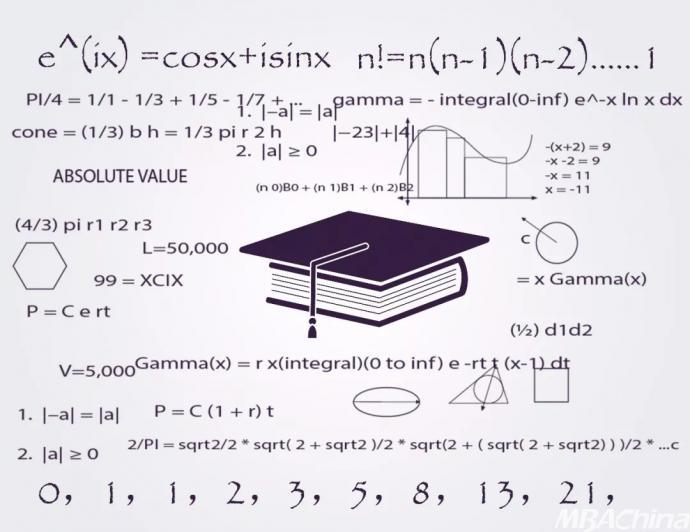 e^(ix) =cosx+isinx n!=n(n-1)(n-2)......1
PI/4 = 1/1 - 1/3 + 1/5 - 1/7 + ... gamma = - integral(0-inf) e^-x ln x dx
1. |-a| = |a|
cone = (1/3) b h = 1/3 pi r 2 h |-23|+|4|
2. |a| ≥ 0
-(x+2) = 9
-x -2 = 9
-x = 11
x = -11
ABSOLUTE VALUE
(n 0)B0 + (n 1)B1 + (n 2)B2
(4/3) pi r1 r2 r3
L=50,000
C
99 = XCIX
= x Gamma(x)
P = C e rt
(½) d1d2
V=5,000
Gamma(x) = r x(integral)(0 to inf) e -rt t (x-1) dt
1. |-a| = |a| P = C (1 + r) t
2. |a| ≥ 0
2/PI = sqrt2/2 * sqrt( 2 + sqrt2 )/2 * sqrt(2 + ( sqrt( 2 + sqrt2) ) )/2 * ...c
0, 1, 1, 2, 3, 5, 8, 13, 21,
MBAChina